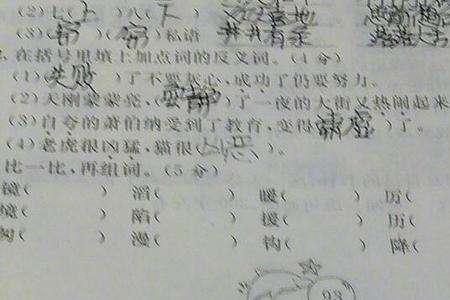 (2)七(上)八(下)
(3)(窃)(窃)私语 井井有条
在括号里填上加点词的反义词。(4分)
(1)(失败)了不要灰心,成功了仍要努力。
(2)天刚蒙蒙亮,( )了一夜的大街又热闹起来
(3)自夸的萧伯纳受到了教育,变得( )了。
(4)老虎很凶猛,猫很( )。
比一比,再组词。(5分)
镜( ) 滔( ) 暖( ) 厉( )
境( ) 陷( ) 援( ) 历( )
漫( ) 钩( ) 降(
93